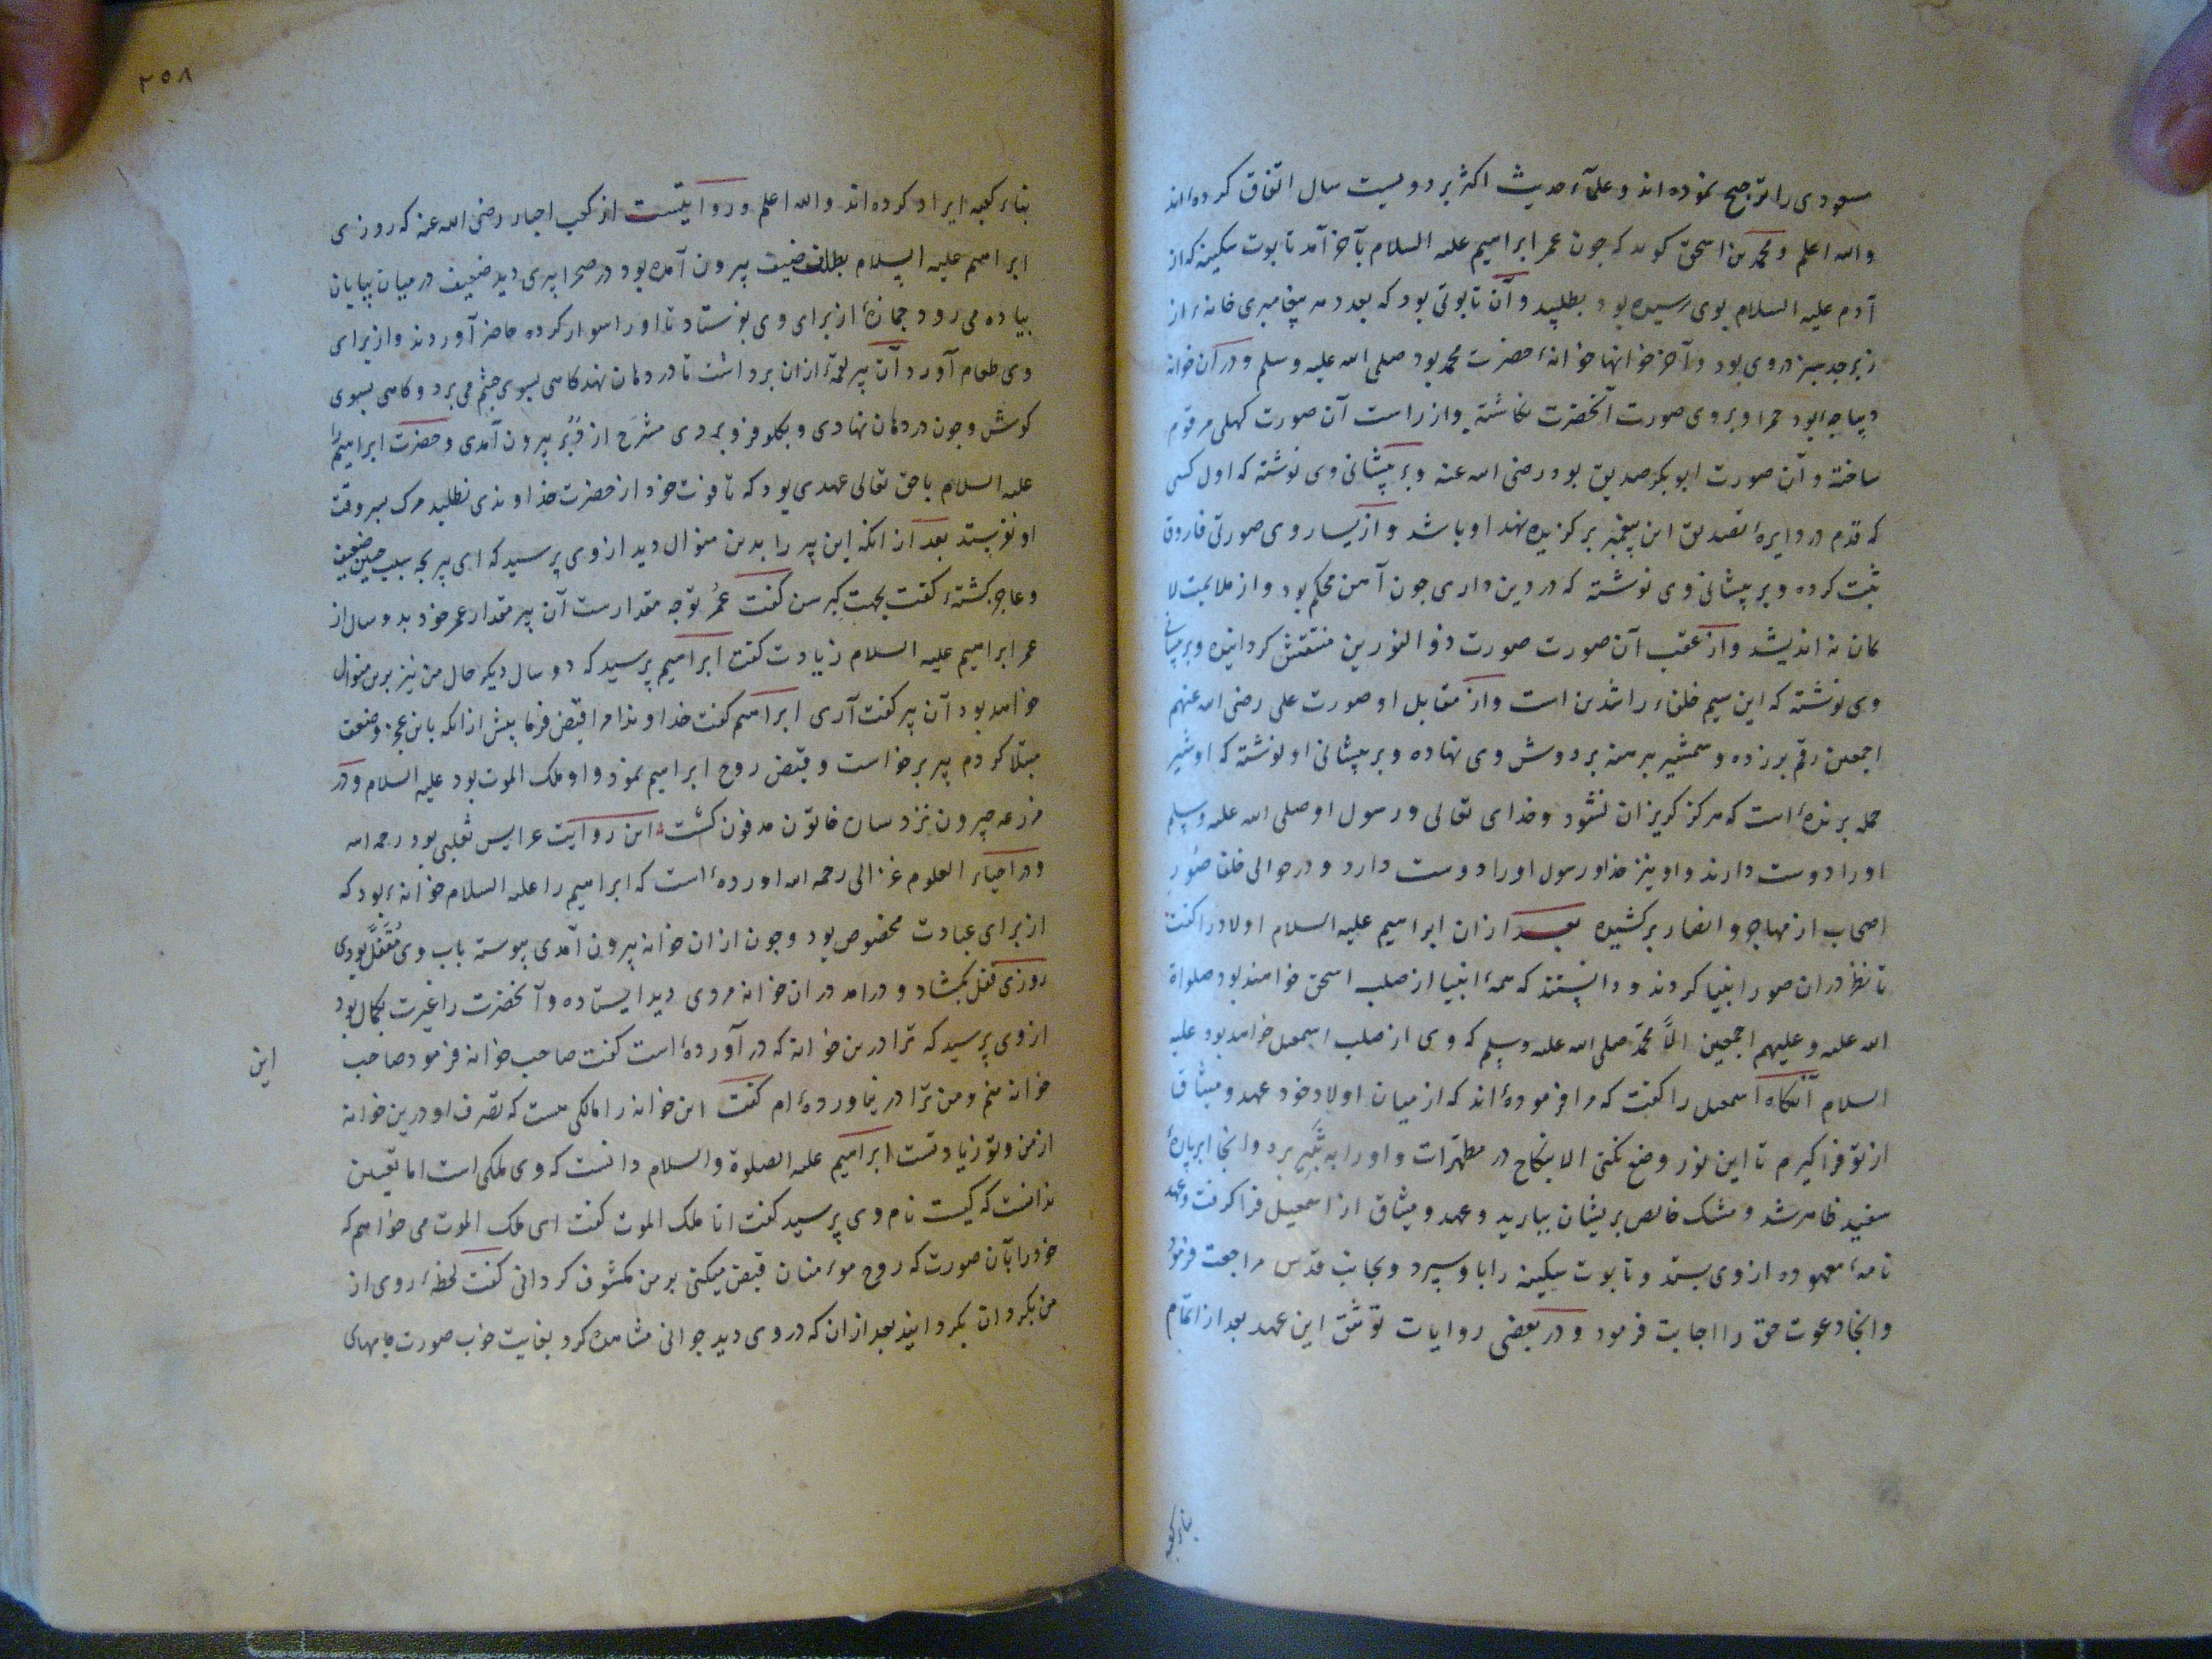 مسعودی را ترجیح نموده اند و علمآء حدیث اکثر بر دویست سال اتفاق کرده اند
والله اعلم و محمد بن اسحق کوید که چون عمر ابراهیم علیه السلام بآخر آمد تابوت سکینه که از
آدم علیه السلام بوی رسیده بود بطلبید و آن تابوتی بود که بعدد هر پیغامبری خانه از
زبرجد سبز در وی بود و آخر خوانها خوانهٔ حضرت محمد بود صلی الله علیه وسلم و در آن خوانه
دیباجه بود حمرا و بروی صورت آنحضرت نکاشته و از راست آن صورت کهلی مرقوم
ساخته و آن صورت ابوبکر صدیق بود رضی الله عنه و بر پیشانی وی نوشته که اول کسی
که قدم در دایرهٔ تصدیق این پیغمبر برکزیده نهد او باشد و از یسار وی صورتی فاروق
ثبت کرده و بر پیشانی وی نوشته که در دین داری جون آهن محکم بود و از ملامت لا
ئمان نه اندیشد و از عقب آن صورت صورت ذو النورین منتقش کردانیده و بر پیشانی
وی نوشته که این سیم خلفاء راشدین است و از مقابل او صورت علی رضی الله عنهم
اجمعین رقم برزده و شمشیر برهنه بر دوش وی نهاده و بر پیشانی او نوشته که او شیر
حمله برندهٔ است که هرکز کریزان نشود و خدای تعالی و رسول او صلی الله علیه وسلم
او را دوست دارند و او نیز خدا و رسول او را دوست دارد و در حوالی خلفا صُوَر
اصحاب از مهاجر و انصار برکشیده بعد از ان ابراهیم علیه السلام اولاد را کفت
تا نظر در ان صور انبیا کردند و دانستند که همهٔ انبیا از صلب اسحق خواهند بود صلواة
الله علیه و علیهم اجمعین الّا محمّد صلی الله علیه وسلم که وی از صلب اسمعیل خواهد بود علیه
السلام آنکاه اسمعیل را کفت که مرا فرموده اند که از میان اولاد خود عهد و میثاق
از تو فراکیرم تا این نور وضع نکنی الا بنکاح در مطهّرات و او را به برد و انجا ابر پارهٔ
سفید ظاهر شد و مشک خالص بریشان ببارید و عهد و میثاق از اسمعیل فرا کرفت و عهد
نامهٔ معهوده از وی بستد و تابوت سکینه را باو سپرد و بجانب قدس مراجعت فرمود
و انجا دعوت حق را اجابت فرمود و در بعضی روایات توثیق این عهد بعد از اتمام
بناء کعبه
٢٥٨
بناء کعبه ایراد کرده اند والله اعلم و روایتست از کعب احبار رضی الله عنه که روزی
ابراهیم علیه السلام بطلب ضیف بیرون آمده بود در صحرا پیری دید ضعیف در میان بیابان
پیاده می رود جمازهٔ از برای وی بفرستاد تا او را سوار کرده حاضر آوردند و از برای
وی طعام آورد آن پیر لقمهٔ ازان برداشت تا در دهان نهد کاهی بسوی چشم می برد و کاهی بسوی
کوش و جون در دهان نهادی و بکلو فرو بردی مشرح از دُبُر بیرون آمدی و حضرت ابراهیم را
علیه السلام با حق تعالی عهدی بود که تا فوت خود از حضرت خداوندی نطلبد مرک بسر وقت
او نفرستد بعد از انکه این پیر را بدین منوال دید از وی پرسید که ای پیر بجه سبب جنین ضعیف
و عاجز کشتهٔ کفت بجهت کبر سن کفت عمر تو چه مقدارست آن پیر مقدار عمر خود بدو سال از
عمر ابراهیم علیه السلام زیادت کفت ابراهیم پرسید که دو سال دیکر حال من نیز برین منوال
خواهد بود آن پیر کفت آری ابراهیم کفت خداوندا مرا قبض فرما پیش از انکه باین عجز و ضعف
مبتلا کردم پیر برخواست و قبض روح ابراهیم نمود و او ملک الموت بود علیه السلام و در
مزرعه حبرون نزد ساره خاتون مدفون کشت این روایت عرایس ثعلبی بود رحمه الله
و در احیاء العلوم غزالی رحمه الله آورده است که ابراهیم را علیه السلام خوانه بود که
از برای عبادت مخصوص بود و جون ازان خوانه بیرون آمدی پیوسته باب وی مُقَفَّل بودی
روزی قفل بکشاد و درامد در ان خوانه مردی دید ایستاده و آنحضرت را غیرت بکمال بود
از وی پرسید که ترا درین خوانه که در آورده است کفت صاحب خوانه فرمود صاحب
خوانه منم و من ترا در نیاورده ام کفت این خوانه را مالکی هست که تصرف او درین خوانه
از من و تو زیادتست ابراهیم علیه الصلوة والسلام دانست که وی ملکی است اما تعیین
ندانست که کیست نام وی پرسید کفت انا ملک الموت کفت ای ملک الموت می خواهم که
خود را بآن صورت که روح مؤمنان قبض میکنی بر من مکشوف کردانی کفت لحظهٔ روی از
من بکردان بکردانید بعد ازان که در وی دید جوانی مشاهده کرد بغایت خوب صورت جامهای
این